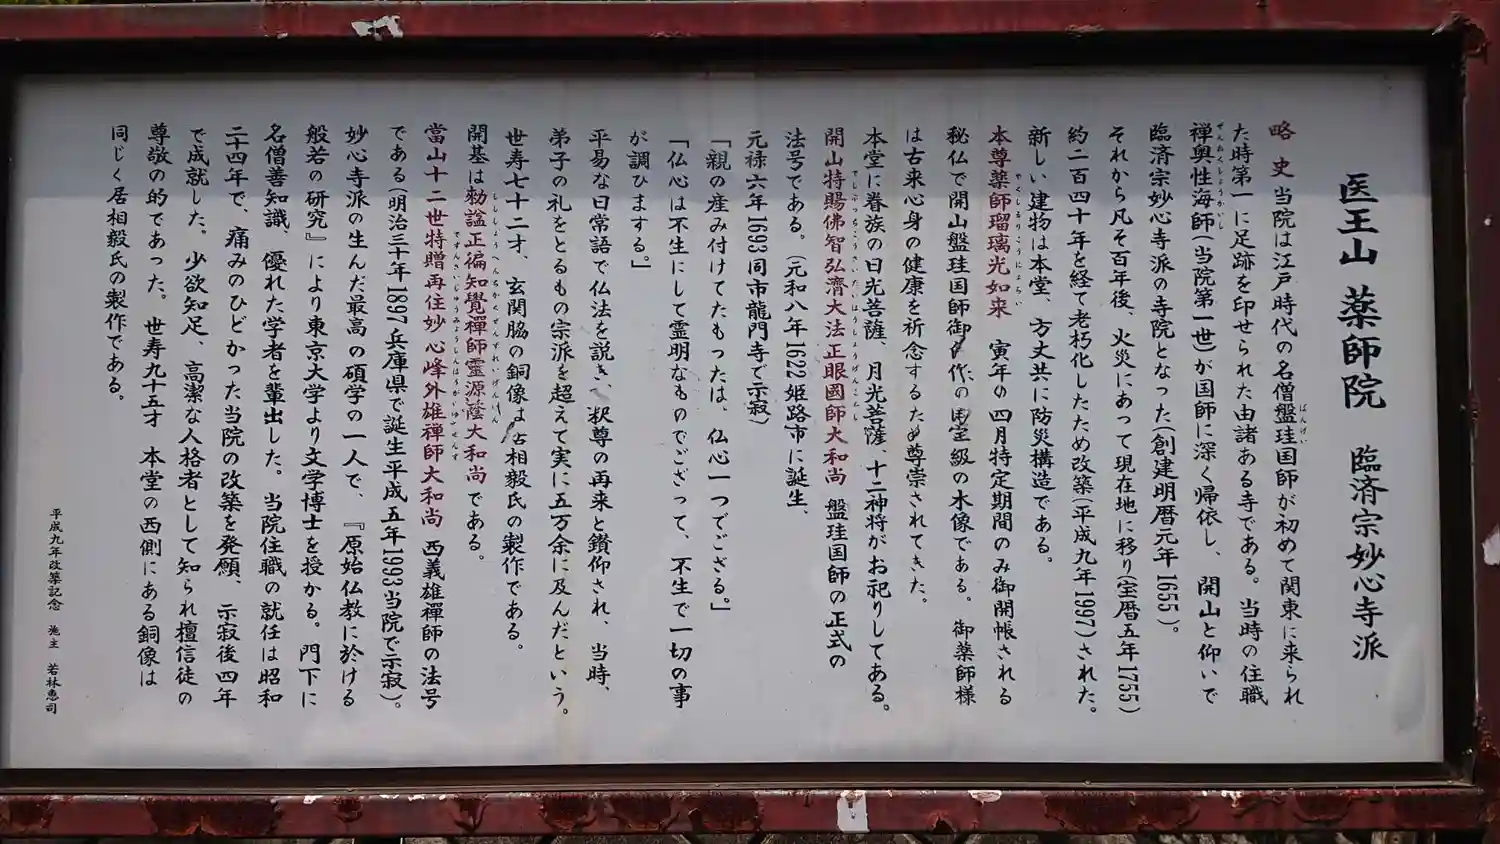 医王山 薬師院 臨済宗妙心寺派
略史 当院は江戸時代の名僧盤珪国師が初めて関東に来られ
た時第一に足跡を印せられた由諸ある寺である。当時の住職
禅奥性海師(当院第一世)が国師に深く帰依し、開山と仰いで
臨済宗妙心寺派の寺院となった(創建明暦元年1655)。
それから凡そ百年後、火災にあって現在地に移り(宝暦五年1755)
約二百四十年を経て老朽化したため改築(平成九年1997)された。
新しい建物は本堂、方丈共に防災構造である。
本尊薬師瑠璃光如来 寅年の四月特定期間のみ御開帳される
秘仏で開山盤珪国師御作の国宝級の木像である。御薬師様
は古来心身の健康を祈念するため尊崇されてきた。
本堂に眷族の日光菩薩、月光菩薩、十二神将がお祀りしてある。
開山特賜佛智弘濟大法正眼國師大和尚 盤珪国師の正式の
法号である。(元和八年1622姫路市に誕生、
元禄六年1693同市龍門寺で示寂)
「親の産み付けてたもったは、仏心一つでござる。」
「仏心は不生にして霊明なものでござって、不生で一切の事
が調ひます。」
平易な日常語で仏法を説き、釈尊の再来と鑽仰され、当時、
弟子の礼をとるもの宗派を超えて実に五万余に及んだという。
世寿七十二才、玄関脇の銅像は 相毅氏の製作である。
開基は勅諡正徧知覺禪師霊源 大和尚である。
當山十二世特贈再住妙心峰外雄禅師大和尚 西義雄禅師の法号
である(明治三十年1897兵庫県で誕生平成五年1993当院で示寂)。
妙心寺派の生んだ最高の碩学の一人で、『原始仏教に於ける
般若の研究』により東京大学より文学博士を授かる。門下に
名僧善知識、優れた学者を輩出した。当院住職の就任は昭和
二十四年で、痛みのひどかった当院の改築を発願、示寂後四年
で成就した。少欲知足、高潔な人格者として知られ檀信徒の
尊敬の的であった。世寿九十五才 本堂の西側にある銅像は
同じく居相毅氏の製作である。
平成九年改築記念 施主 若林恵司